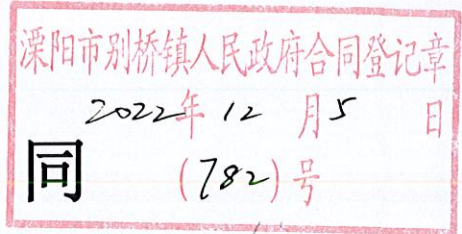 溧阳市别桥镇人民政府合同登记章
2022年12月5日
同 (782)号